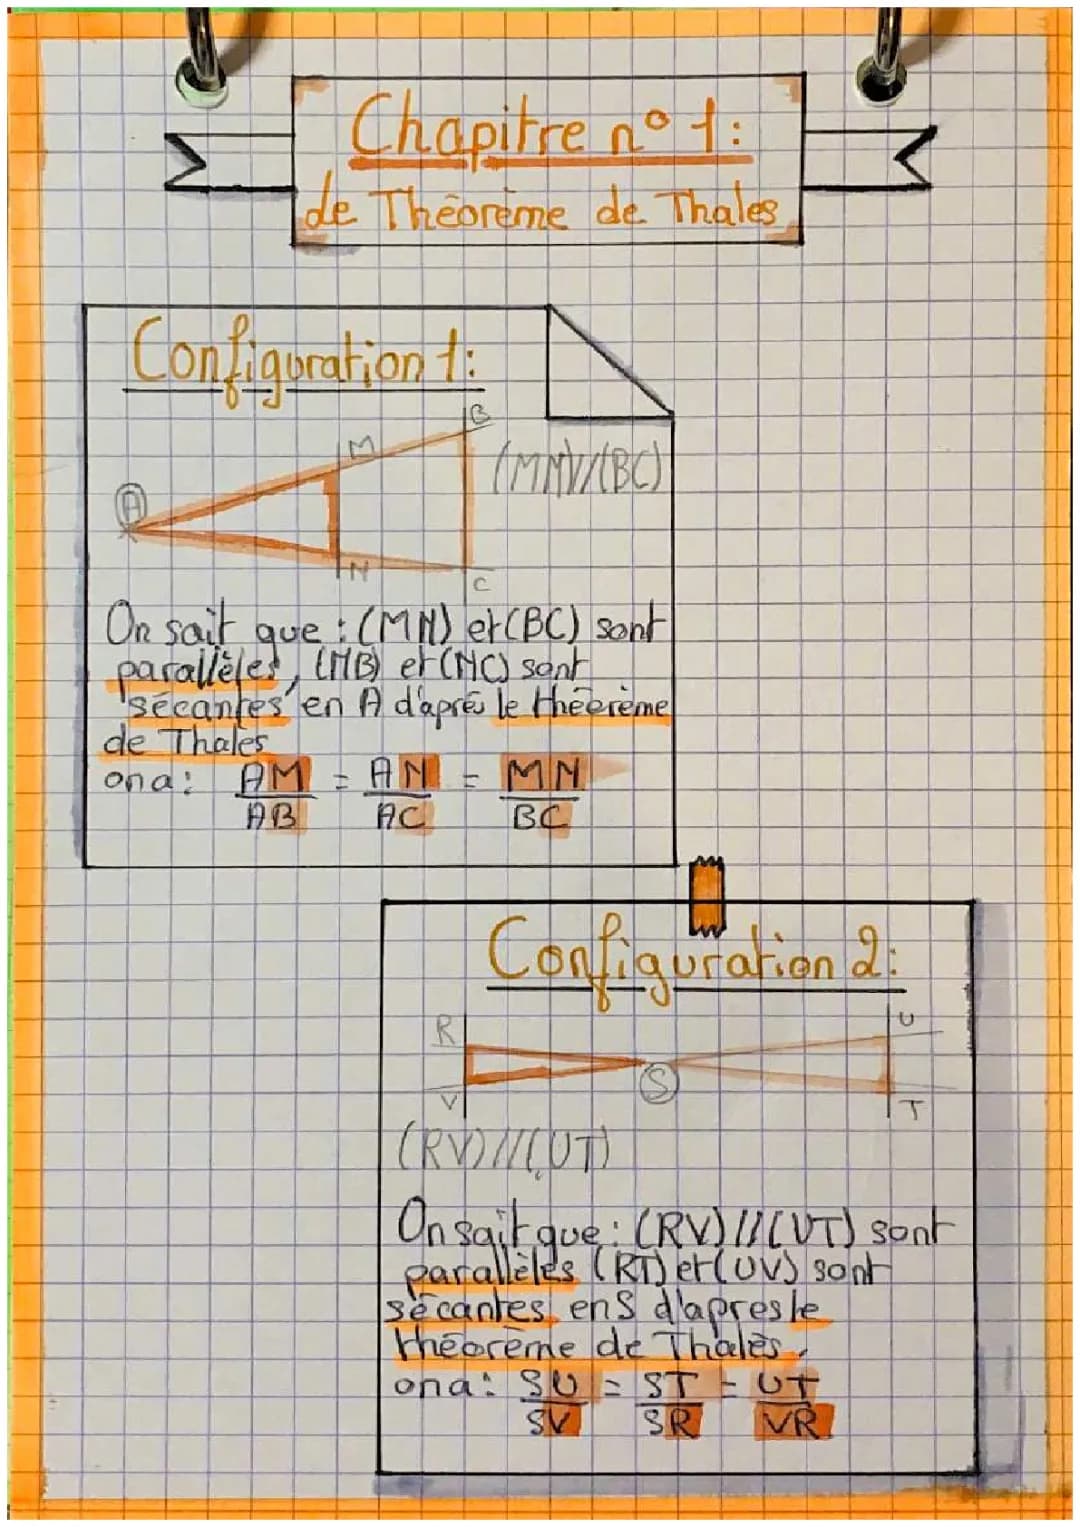 Chapitre n° 1:
de Théorème de Thales
Configuration 1:
B
M
(MN)//(BC)
A
N
C
On sait que : (MN) et (BC) sont
parallèles, (MB) et (NC) sont
sécantes en A d'aprés le théorème
de Thales
on a : AM = AN = MN
AB AC BC
Configuration 2:
R U
S
V T
(RV)//(UT)
On sait que : (RV)//(UT) sont
parallèles (RT) et (UV) sont
sécantes en S d'apres le
théorème de Thalès,
on a : SU = ST = UT
SV SR VR